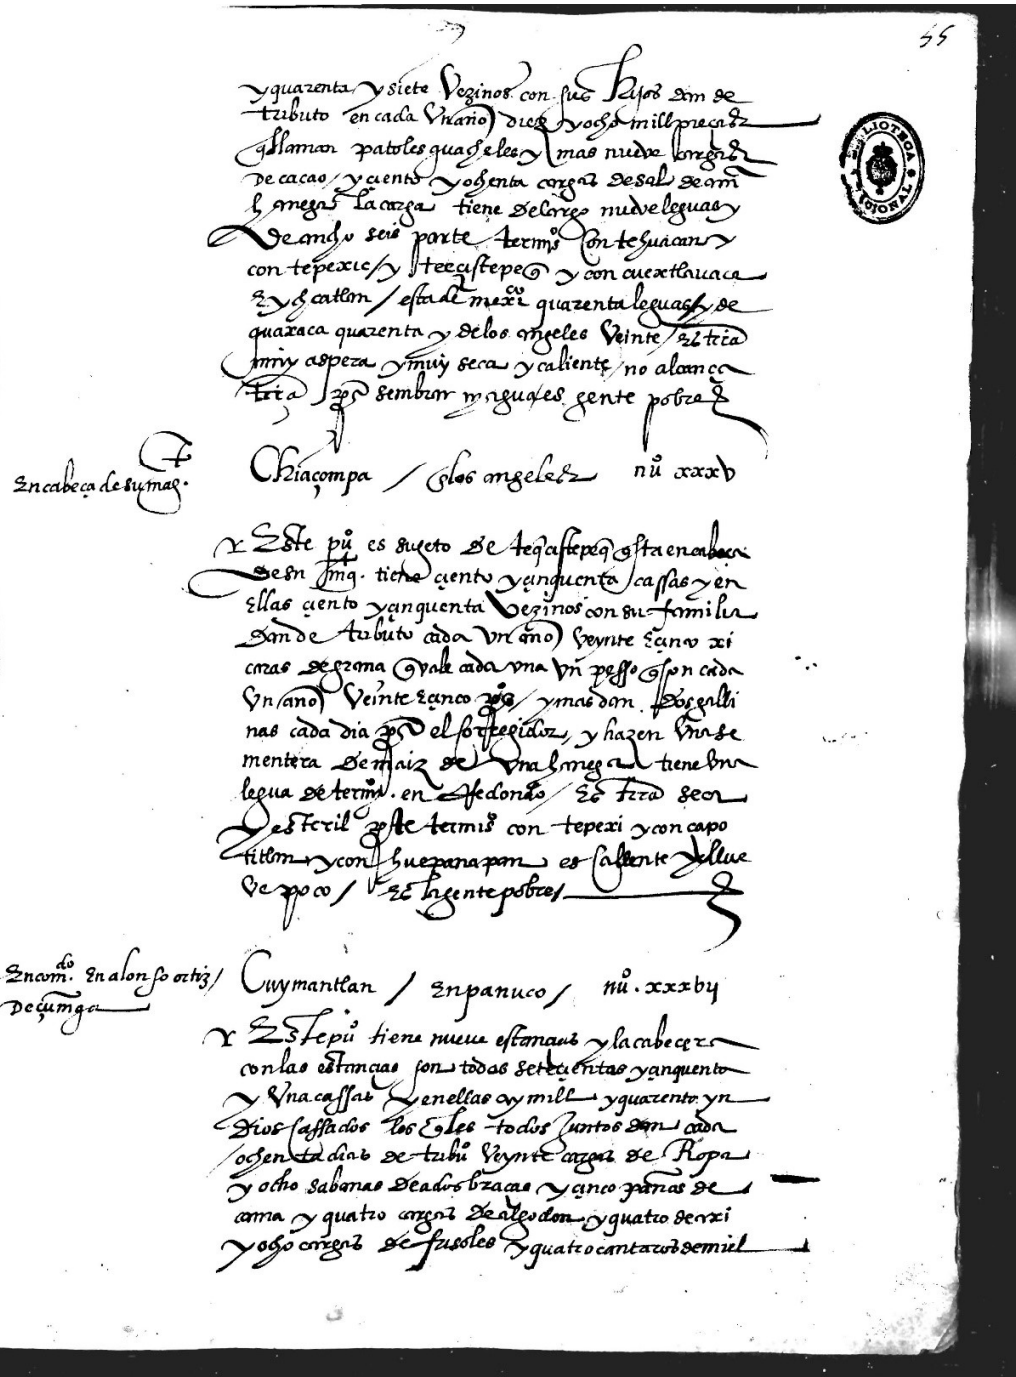 55
y quarenta y siete vezinos con sus hijos dan de
tributo en cada vn año diez y ocho mill pieças
q̃ llaman patoles quacheles y mas nueve cargas
de cacao / y çiento y ochenta cargas de sal de am̃
hanega la carga tiene de largo nueve leguas y
de ancho seis parte termiºs con tehuacan y
con tepexic / y tecçistepeq̃ y con cuextlavaca
E ychcatlan / esta de mexico quarenta leguas y de
guaxaca quarenta y de los angeles veinte / Es trrã
muy aspera y muy seca y caliente / no alcança
trrã pª sembrar magueies gente pobre
En cabeça de su mag.
Chiaçompa / q̃ los angeles nuº xxxv
Este puº es sugeto de teqçistepeq̃ q̃ sta en cabeça
de su mg. tiene çiento y çinquenta cassas y en
Ellas çiento y çinquenta vezinos con su familia
dan de tributo cada vn año veynte E çinco xi
caras de grana q̃ vale cada vna vn pesso q̃ son cada
vn año veinte E çinco pºs / y mas dan dos galli
nas cada dia pª el corregidor, y hazen vna se
mentera de maiz de vna hanega tiene vna
legua de termiº. en Redondo / Es trrã seca
y esteril pte termiºs con tepexi y con capo
titlan y con huepanapan es caliente y llue
ve poco / Es la gente pobre /
Encomdo. En alonso ortiz /
de çuniga
Cuymantlan / En panuco / nuº. xxxvij
Este puº tiene nueve estancias y la cabecera
con las estançias son todas seteçientas y çinquenta
y vna cassas y en ellas ay mill y quarenta yn
dios cassados los q̃les todos juntos dan cada
ochenta dias de tribuº veynte cargas de Ropa
y ocho sabanas de a dos braças y çinco pañas de
cama y quatro cargas de algodon y quatro de axi
y ocho cargas de frisoles y quatro cantaros de miel
BIBLIOTECA NACIONAL